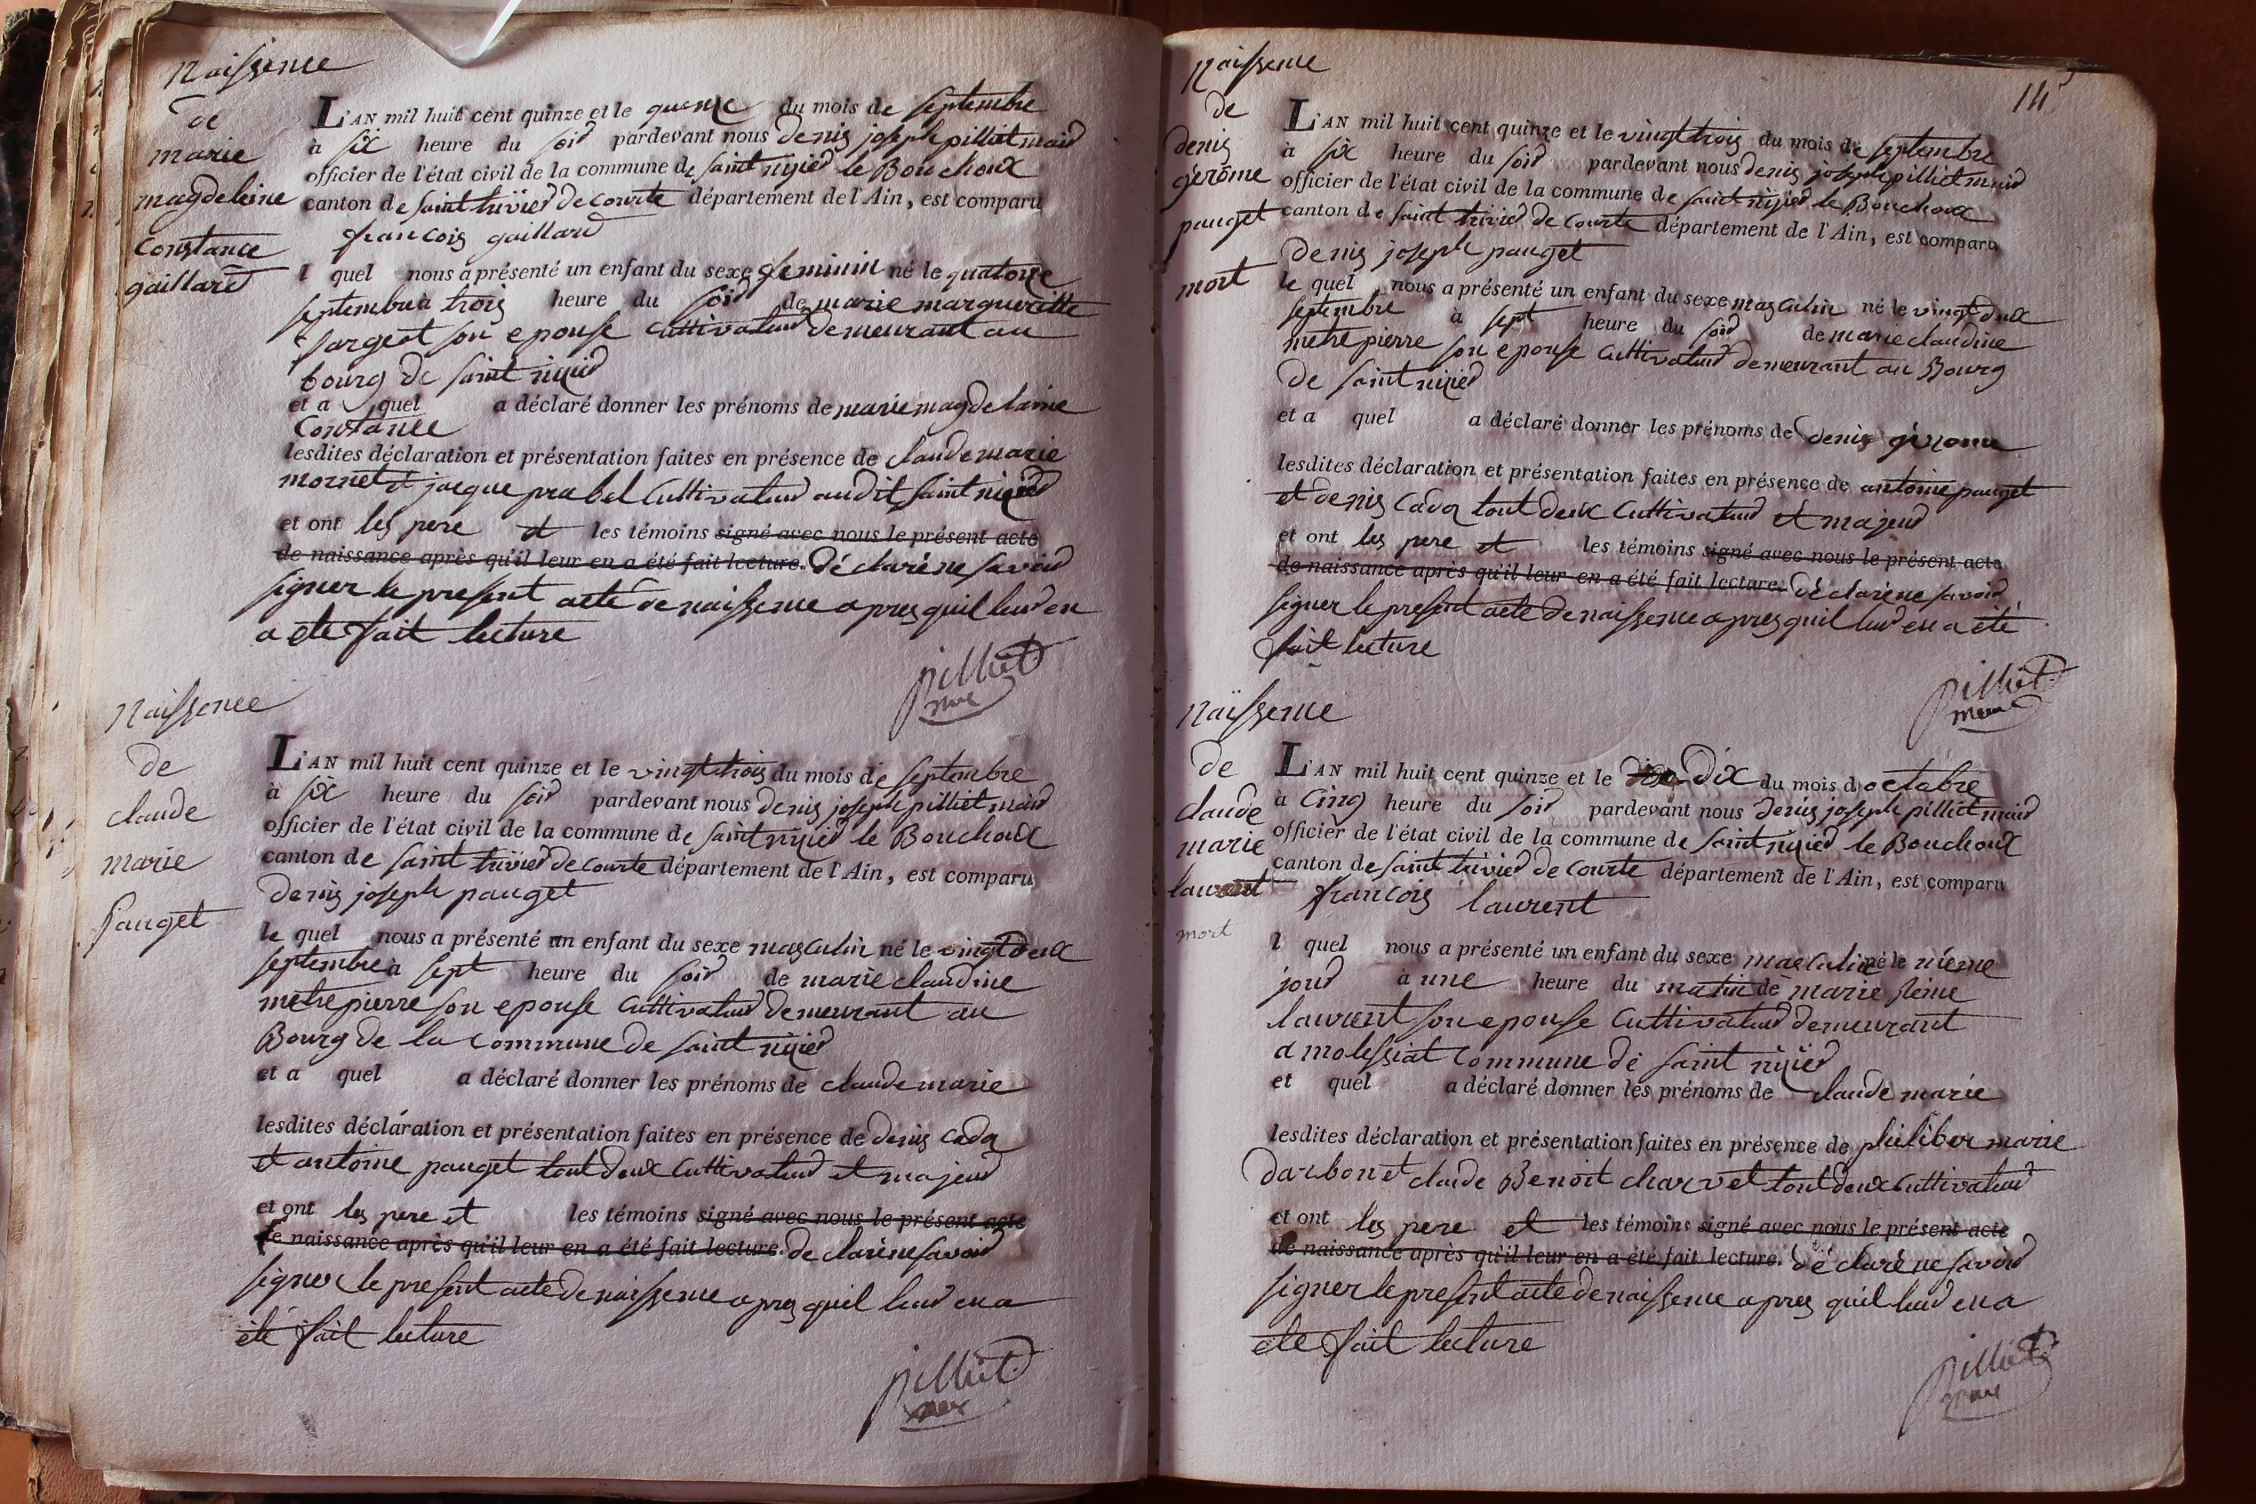 Naissence
de
marie
magdeleine
Constance
gaillard
L'AN mil huit cent quinze et le quenze du mois de septembre
à six heure du soir pardevant nous denis joseph pilliet mair
officier de l'état civil de la commune de saint nizier le Bouchoux
canton de saint trivier de courte département de l'Ain, est comparu
francois gaillard
l quel nous a présenté un enfant du sexe feminin né le quatorze
septembre à trois heure du soir de marie margueritte
son epouse Cultivateur demeurant au
bourg de saint nizier
et a quel a déclaré donner les prénoms de marie magdelaine
Constance
lesdites déclaration et présentation faites en présence de claude marie
mornet et jacque prabel Cultivateur audit saint nizier
et ont les pere et les témoins signé avec nous le présent acte
de naissance après qu'il leur en a été fait lecture. déclaré ne savoir
signer le present acte de naissence apres quil leur en
a ete fait lecture
pilliet
Naissence
de
claude
marie
pauget
L'AN mil huit cent quinze et le vingt trois du mois de septembre
à six heure du soir pardevant nous denis joseph pilliet mair
officier de l'état civil de la commune de saint nizier le Bouchoux
canton de saint trivier de courte département de l'Ain, est comparu
denis joseph pauget
le quel nous a présenté un enfant du sexe masculin né le vingt deux
septembre à sept heure du soir de marie claudine
metrepierre son epouse Cultivateur demeurant au
Bourg de la Commune de saint nizier
et a quel a déclaré donner les prénoms de claude marie
lesdites déclaration et présentation faites en présence de denis cadoz
et antoine pauget tout deux Cultivateur et majeur
et ont les pere et les témoins signé avec nous le présent acte
de naissance après qu'il leur en a été fait lecture. declaré ne savoir
signer le present acte de naissence apres quil leur en a
été fait lecture
pilliet
mair
14
Naissence
de
denis
gerôme
pauget
mort
L'AN mil huit cent quinze et le vingt trois du mois de septembre
à six heure du soir pardevant nous denis joseph pilliet mair
officier de l'état civil de la commune de saint nizier le Bouchoux
canton de saint trivier de courte département de l'Ain, est comparu
denis joseph pauget
le quel nous a présenté un enfant du sexe masculin né le vingt deux
septembre à sept heure du soir de marie claudine
metrepierre son epouse Cultivateur demeurant au Bourg
de saint nizier
et a quel a déclaré donner les prénoms de denis gérome
lesdites déclaration et présentation faites en présence de antoine pauget
et denis cadoz tout deux Cultivateur et majeur
et ont les pere et les témoins signé avec nous le présent acte
de naissance après qu'il leur en a été fait lecture. déclaré ne savoir
signer le present acte de naissence apres quil leur en a été
fait lecture
pilliet
maire
Naissence
de
claude
marie
laurent
mort
L'AN mil huit cent quinze et le dix du mois d octobre
à Cinq heure du soir pardevant nous denis joseph pilliet mair
officier de l'état civil de la commune de saint nizier le Bouchoux
canton de saint trivier de courte département de l'Ain, est comparu
francois laurent
l quel nous a présenté un enfant du sexe masculin né le méme
jour à une heure du matin de marie
laurent son epouse Cultivateur demeurant
a molessiat Commune de saint nizier
et quel a déclaré donner les prénoms de claude marie
lesdites déclaration et présentation faites en présence de philiber marie
darbon et claude Benoit charvet tout deux Cultivateur
et ont les pere et les témoins signé avec nous le présent acte
de naissance après qu'il leur en a été fait lecture. déclaré ne savoir
signer le present acte de naissence apres quil leur en a
ete fait lecture
pilliet